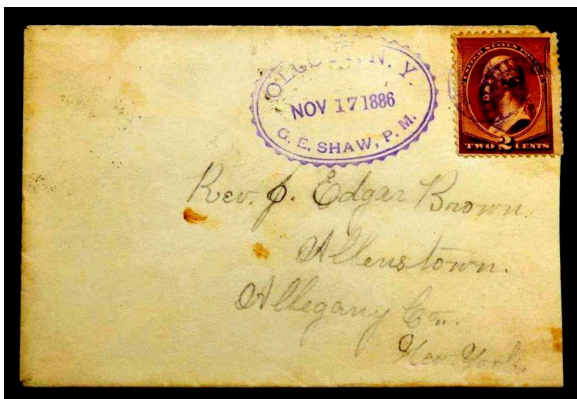 N. Y.
NOV 17 1886
G. E. SHAW, P. M.
UNITED STATES POSTAGE
TWO 2 CENTS
Rev. J. Edgar Brown.
Allenstown.
Allegany Co.
New York